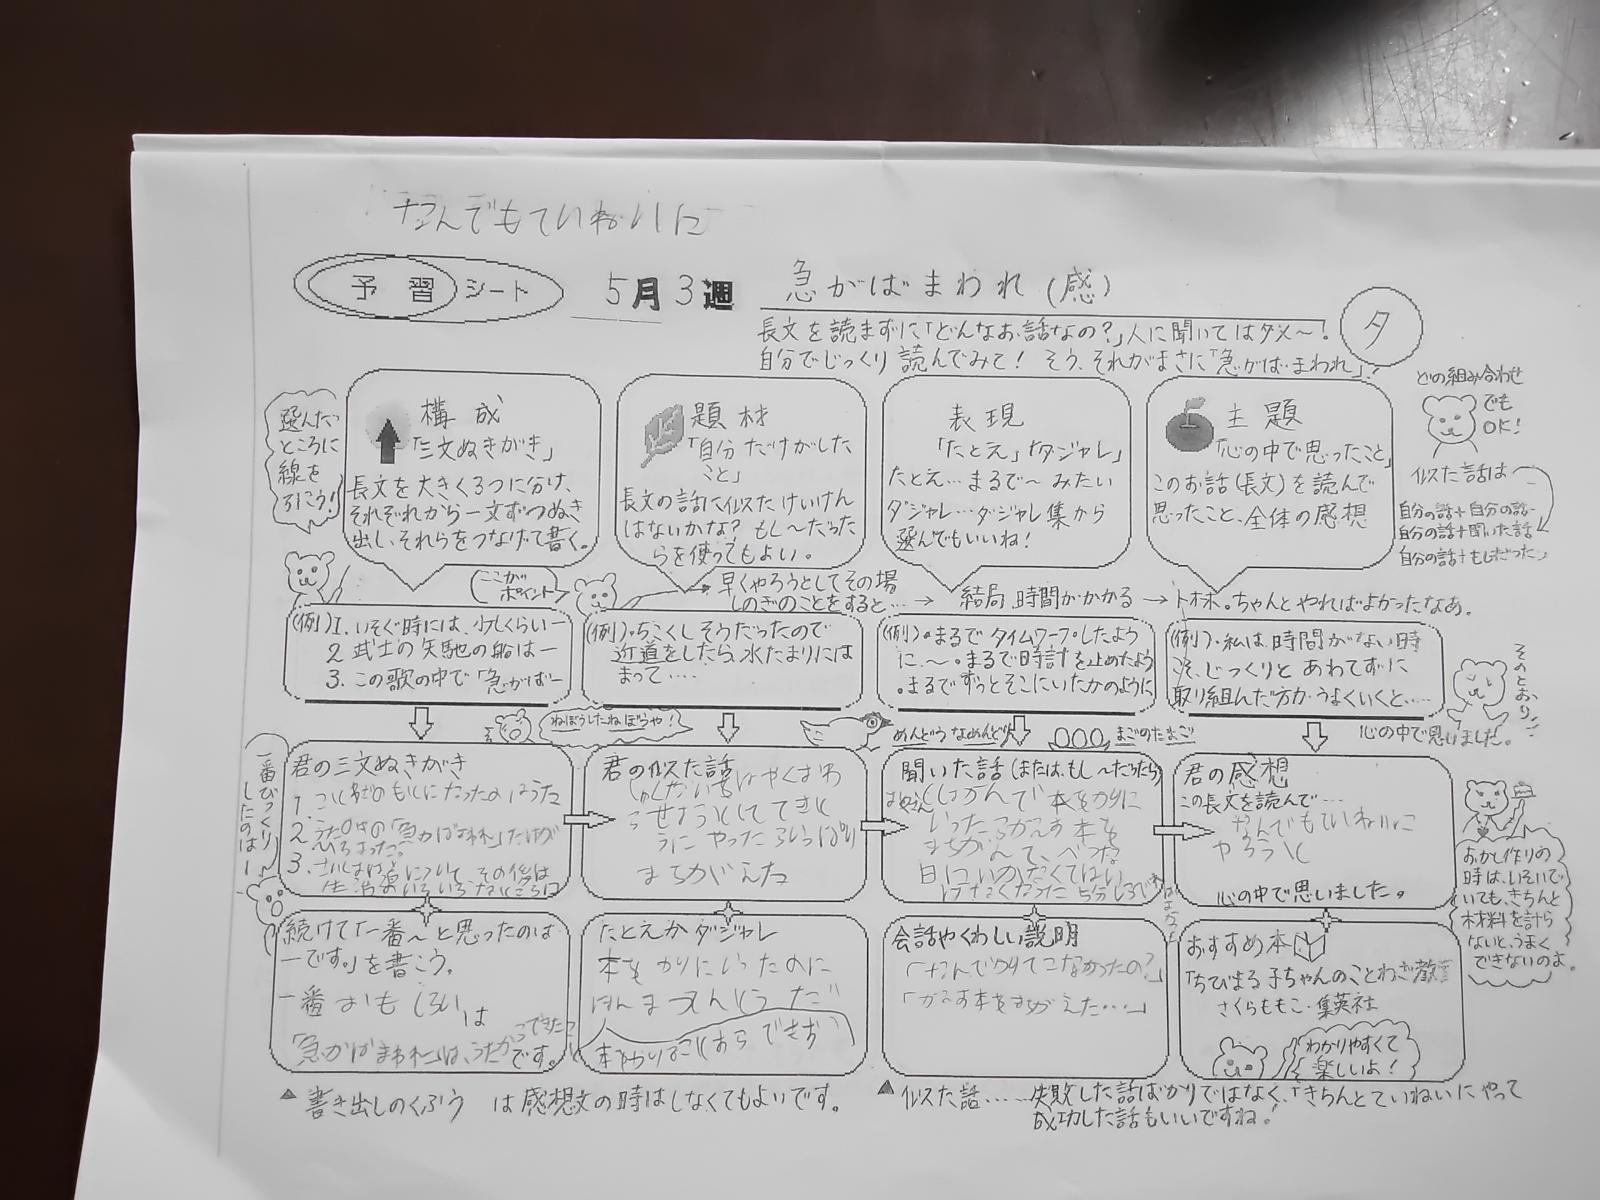 なんでもていねいに
予習シート
5月3週
急がばまわれ(感)
タ
長文を読まずに「どんなお話なの?」人に聞いてはダメ〜!
自分でじっくり読んでみて! そう、それがまさに「急がばまわれ」!
選んだ
ところに
線を
引こう!
構成
「三文ぬきがき」
長文を大きく3つに分け、
それぞれから一文ずつぬき
出し、それらをつなげて書く。
題材
「自分だけがした
こと」
長文の話に似たけいけん
はないかな? もし〜だった
らを使ってもよい。
表現
「たとえ」「ダジャレ」
たとえ…まるで〜みたい
ダジャレ…ダジャレ集から
選んでもいいね!
主題
「心の中で思ったこと」
このお話(長文)を読んで
思ったこと、全体の感想
どの組み合わせ
でも
OK!
似た話は
自分の話+自分の話
自分の話+聞いた話
自分の話+もしだったら
ここが
ポイント
早くやろうとしてその場
しのぎのことをすると…
→ 結局、時間がかかる
→トホホ。ちゃんとやればよかったなあ。
(例)1. いそぐ時には、少しくらい一
2. 武士の矢馳の船は一
3. この歌の中で「急がば一
(例)・ちこくしそうだったので
近道をしたら、水たまりには
まって……
(例)・まるでタイムワープしたよう
に、〜。まるで時計を止めたよう
・まるでずっとそこにいたかのように
(例)・私は、時間がない時
こそ、じっくりと あわてずに
取り組んだ方が うまくいくと……
そのとおり
心の中で思いました。
ねぼうしたねぼうや!
めんどうなめんどり
まごのたまご
一番びっくり
したのは一
君の三文ぬきがき
1.
2.
3.
君の似た話
まちがえた
聞いた話(または、もし〜だったら)
本をかりに
いったら かえす本を
まちがえて、べつな
君の感想
この長文を読んで…
なんでもていねいに
やろうと
心の中で思いました。
おかし作りの
時は、いそいで
いても、きちんと
材料を計ら
ないと、うまく
できないのよ。
続けて「一番〜と思ったのは
一です。」を書こう。
一番おもしろい は
「急がばまわれ」は、うたからできた
です。
たとえかダジャレ
本を かりにいったのに
会話やくわしい説明
「なんでかりてこなかったの?」
「かえす本をまちがえた……」
おすすめ本
「ちびまる子ちゃんのことわざ教室
さくらももこ・集英社
わかりやすくて
楽しいよ!
▲ 書き出しのくふう は感想文の時はしなくてもよいです。
▲ 似た話……失敗した話ばかりではなく、「きちんとていねいにやって
成功した話もいいですね!